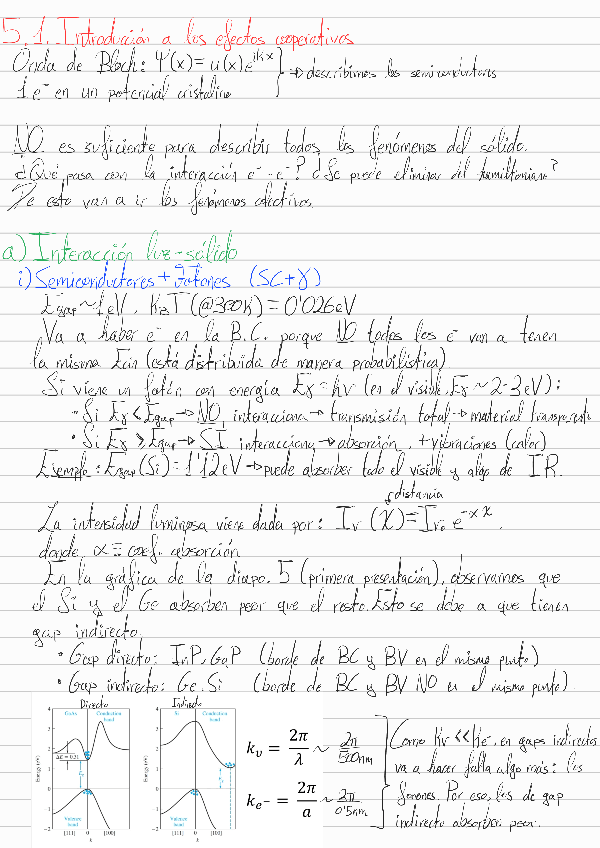 5.1. Introducción a los efectos cooperativos
Onda de Bloch: Ψ(x) = u(x)e^{ikx} → describirnos los semiconductores
1 e⁻ en un potencial cristalino
NO es suficiente para describir todos los fenómenos del sólido.
¿Qué pasa con la interacción e⁻-e⁻? ¿Se puede eliminar del hamiltoniano?
De esto van a ir los fenómenos colectivos.
a) Interacción luz-sólido
i) Semiconductores + fotones (SC+γ)
Egap ~ 1eV, KBT (@300K) = 0'026eV
Va a haber e⁻ en la B.C. porque NO todos los e⁻ van a tener
la misma Ecin (está distribuida de manera probabilística)
Si viene un fotón con energía Eγ = hν (en el visible, Eγ ~ 2-3eV):
• Si Eγ < Egap → NO interacciona → transmisión total → material transparente
• Si Eγ ≥ Egap → SÍ interacciona → absorción, + vibraciones (calor)
Ejemplo: Egap (Si) = 1'12eV → puede absorber todo el visible y algo de IR.
distancia
La intensidad luminosa viene dada por: Iν (x) = Iν₀ e^{-αx},
donde α ≡ coef. absorción
En la gráfica de la diapo. 5 (primera presentación), observamos que
el Si y el Ge absorben peor que el resto. Esto se debe a que tienen
gap indirecto.
• Gap directo: InP, GaP (borde de BC y BV en el mismo punto)
• Gap indirecto: Ge, Si (borde de BC y BV NO en el mismo punto)
Directo Indirecto
GaAs Conduction band
Si Conduction band
ΔE = 0.31
Energy (eV)
4
3
2
1
0
−1
−2
Valence band
[111] 0 [100]
k
Energy (eV)
4
3
2
1
0
−1
−2
Valence band
[111] 0 [100]
k
kν = 2π/λ ~ 2π/500nm
ke⁻ = 2π/a ~ 2π/0'5nm
Como kν << ke⁻, en gaps indirectos
va a hacer falta algo más: los
fonones. Por eso, los de gap
indirecto absorben peor.